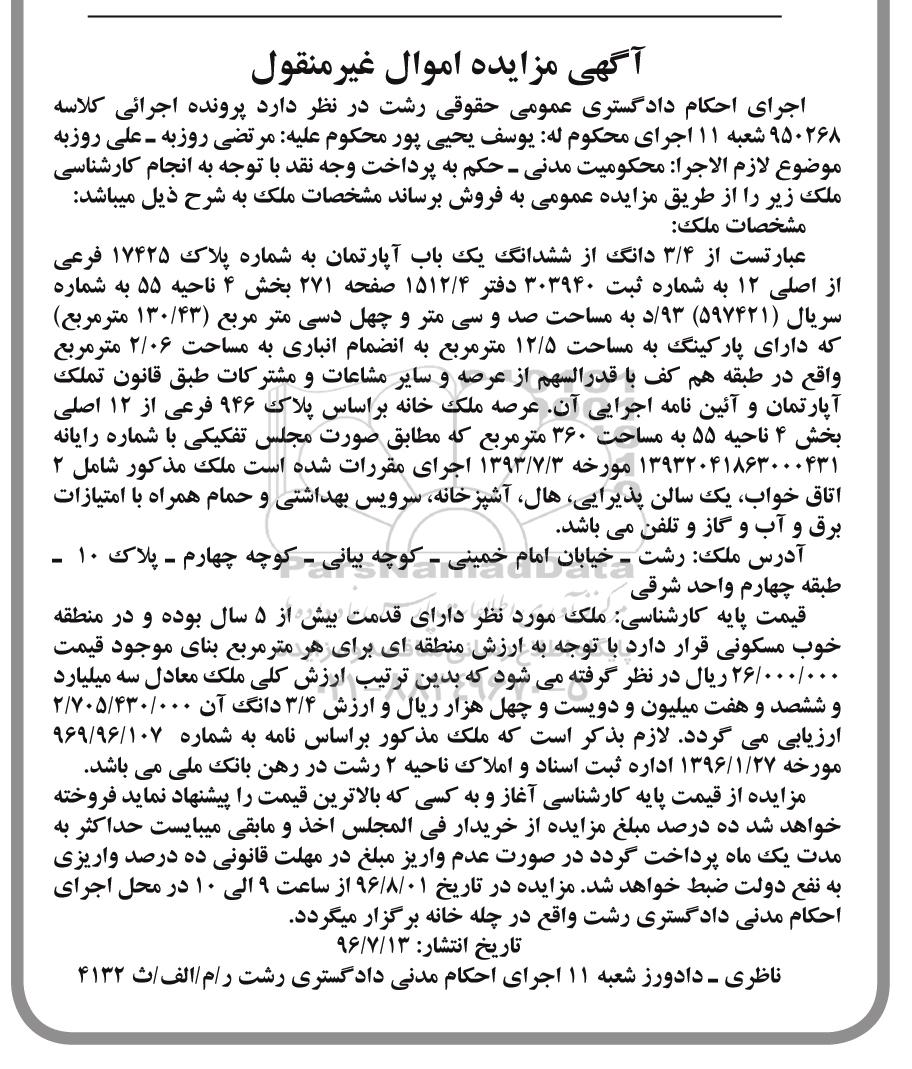 آگهی مزایده اموال غیرمنقول
اجرای احکام دادگستری عمومی حقوقی رشت در نظر دارد پرونده اجرائی کلاسه
۹۵۰۲۶۸ شعبه ۱۱ اجرای محکوم له: یوسف یحیی پور محکوم علیه: مرتضی روزبه ـ علی روزبه
موضوع لازم الاجرا: محکومیت مدنی ـ حکم به پرداخت وجه نقد با توجه به انجام کارشناسی
ملک زیر را از طریق مزایده عمومی به فروش برساند مشخصات ملک به شرح ذیل میباشد:
مشخصات ملک:
عبارتست از ۳/۴ دانگ از ششدانگ یک باب آپارتمان به شماره پلاک ۱۷۴۲۵ فرعی
از اصلی ۱۲ به شماره ثبت ۳۰۳۹۴۰ دفتر ۱۵۱۲/۴ صفحه ۲۷۱ بخش ۴ ناحیه ۵۵ به شماره
سریال (۵۹۷۴۲۱) ۹۳/د به مساحت صد و سی متر و چهل دسی متر مربع (۱۳۰/۴۳ مترمربع)
که دارای پارکینگ به مساحت ۱۲/۵ مترمربع به انضمام انباری به مساحت ۲/۰۶ مترمربع
واقع در طبقه هم کف با قدرالسهم از عرصه و سایر مشاعات و مشترکات طبق قانون تملک
آپارتمان و آئین نامه اجرایی آن. عرصه ملک خانه براساس پلاک ۹۴۶ فرعی از ۱۲ اصلی
بخش ۴ ناحیه ۵۵ به مساحت ۳۶۰ مترمربع که مطابق صورت مجلس تفکیکی با شماره رایانه
۱۳۹۳۲۰۴۱۸۶۳۰۰۰۴۳۱ مورخه ۱۳۹۳/۷/۳ اجرای مقررات شده است ملک مذکور شامل ۲
اتاق خواب، یک سالن پذیرایی، هال، آشپزخانه، سرویس بهداشتی و حمام همراه با امتیازات
برق و آب و گاز و تلفن می باشد.
آدرس ملک: رشت ـ خیابان امام خمینی ـ کوچه بیانی ـ کوچه چهارم ـ پلاک ۱۰ ـ
طبقه چهارم واحد شرقی
ParsNamadData
قیمت پایه کارشناسی: ملک مورد نظر دارای قدمت بیش از ۵ سال بوده و در منطقه
خوب مسکونی قرار دارد با توجه به ارزش منطقه ای برای هر مترمربع بنای موجود قیمت
۲۶/۰۰۰/۰۰۰ ریال در نظر گرفته می شود که بدین ترتیب ارزش کلی ملک معادل سه میلیارد
و ششصد و هفت میلیون و دویست و چهل هزار ریال و ارزش ۳/۴ دانگ آن ۲/۷۰۵/۴۳۰/۰۰۰
ارزیابی می گردد. لازم بذکر است که ملک مذکور براساس نامه به شماره ۹۶۹/۹۶/۱۰۷
مورخه ۱۳۹۶/۱/۲۷ اداره ثبت اسناد و املاک ناحیه ۲ رشت در رهن بانک ملی می باشد.
مزایده از قیمت پایه کارشناسی آغاز و به کسی که بالاترین قیمت را پیشنهاد نماید فروخته
خواهد شد ده درصد مبلغ مزایده از خریدار فی المجلس اخذ و مابقی میبایست حداکثر به
مدت یک ماه پرداخت گردد در صورت عدم واریز مبلغ در مهلت قانونی ده درصد واریزی
به نفع دولت ضبط خواهد شد. مزایده در تاریخ ۹۶/۸/۰۱ از ساعت ۹ الی ۱۰ در محل اجرای
احکام مدنی دادگستری رشت واقع در چله خانه برگزار میگردد.
تاریخ انتشار: ۹۶/۷/۱۳
ناظری ـ دادورز شعبه ۱۱ اجرای احکام مدنی دادگستری رشت ر/م/الف/ث ۴۱۳۲